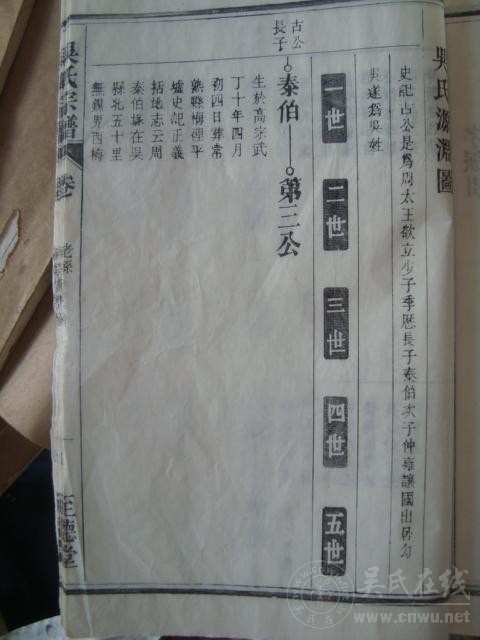 吳氏源淵圖
史記古公是爲周太王欲立少子季歷長子泰伯次子仲雍讓國出居勾
吳遂爲吳姓
一世 二世 三世 四世 五世
古公
長子
泰伯 第三公
生於高宗武
丁十年四月
初四日葬常
熟縣梅里平
墟史記正義
括地志云周
泰伯塚在吳
縣北五十里
無錫界西梅
吳氏宗譜
卷
老系
至德堂
吳氏在线
www.cnwu.net